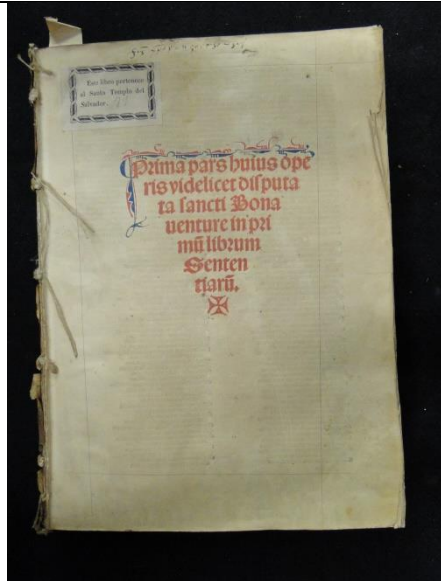 Este libro pertenece
al Santo Templo del
Salvador.
Prima pars huius ope
ris videlicet disputa
ta sancti Bona
uenture in pri
mū librum
Senten
tiarū.